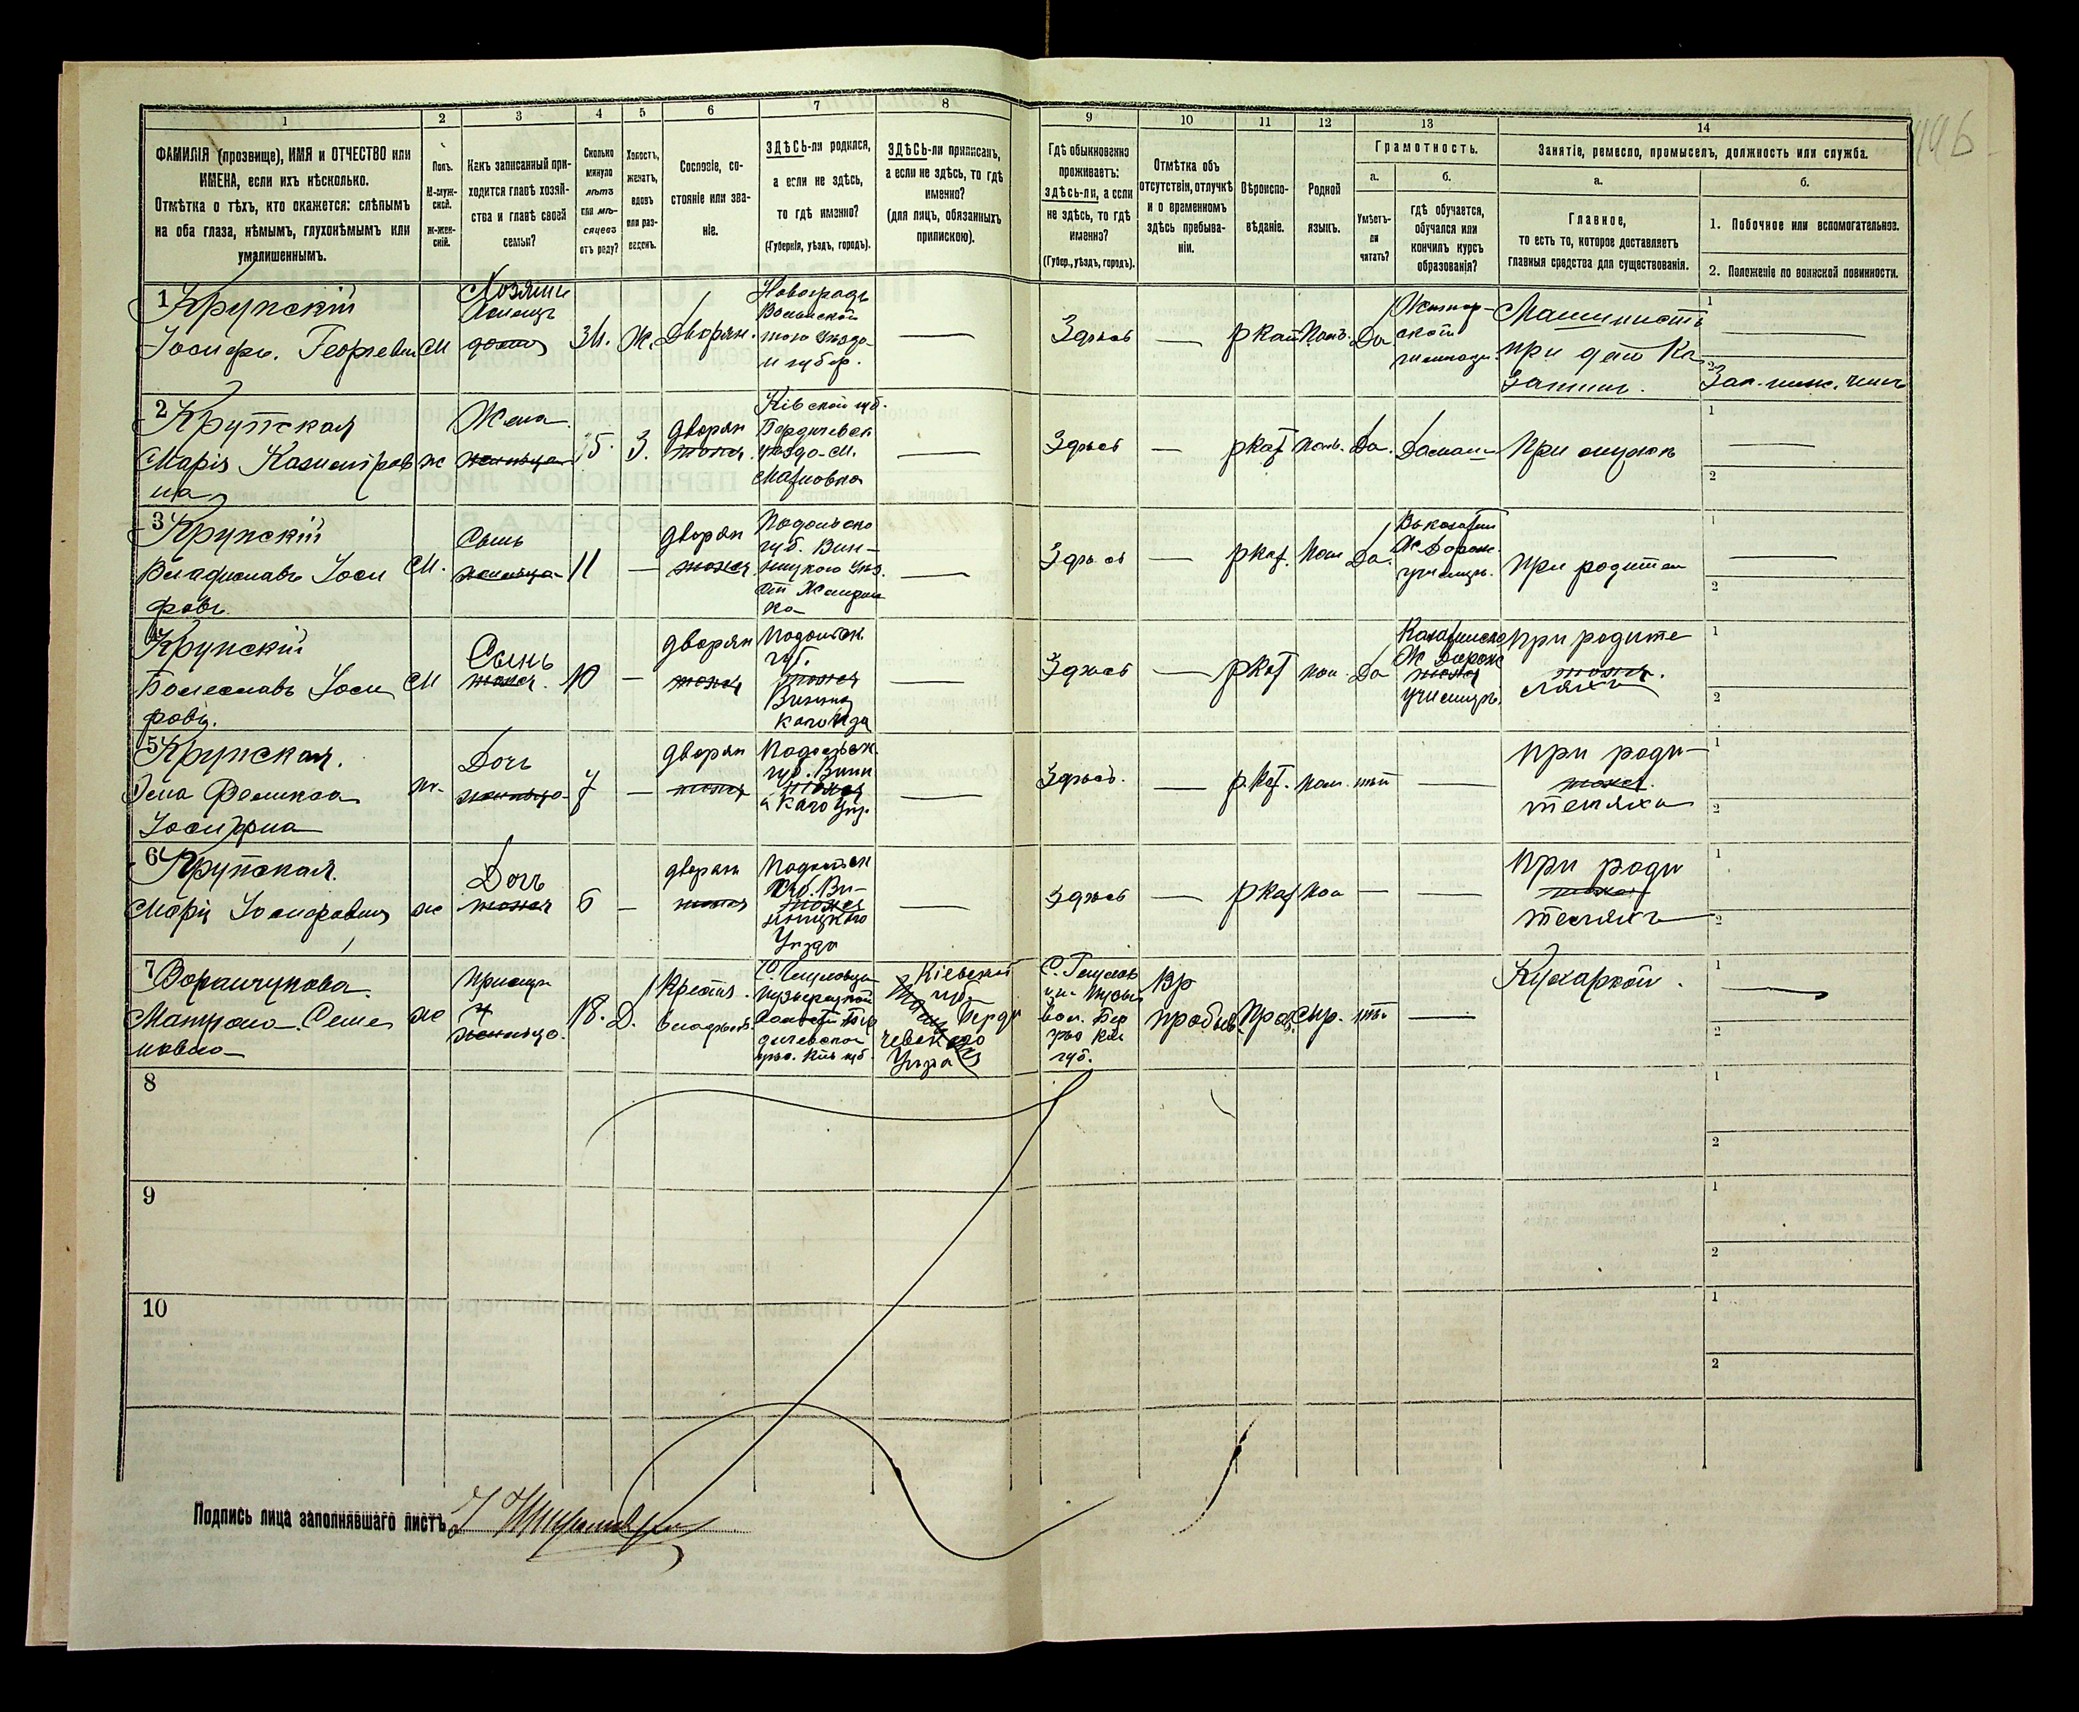 1
2
3
4
5
6
7
8
9
10
11
12
13
14
ФАМИЛІЯ (прозвище), ИМЯ и ОТЧЕСТВО или
ИМЕНА, если ихъ нѣсколько.
Отмѣтка о тѣхъ, кто окажется: слѣпымъ
на оба глаза, нѣмымъ, глухонѣмымъ или
умалишеннымъ.
Полъ.
М-муж-
ской.
Ж-жен-
скій.
Какъ записанный при-
ходится главѣ хозяй-
ства и главѣ своей
семьи?
Сколько
минуло
лѣтъ
или мѣ-
сяцевъ
отъ роду?
Холостъ,
женатъ,
вдовъ
или раз-
веденъ.
Сословіе, со-
стояніе или зва-
ніе.
ЗДѢСЬ-ли родился,
а если не здѣсь,
то гдѣ именно?
(Губернія, уѣздъ, городъ).
ЗДѢСЬ-ли приписанъ,
а если не здѣсь, то гдѣ
именно?
(для лицъ, обязанныхъ
припискою).
Гдѣ обыкновенно
проживаетъ:
здѣсь-ли, а если
не здѣсь, то гдѣ
именно?
(Губер., уѣздъ, городъ).
Отмѣтка объ
отсутствіи, отлучкѣ
и о временномъ
здѣсь пребыва-
ніи.
Вѣроиспо-
вѣданіе.
Родной
языкъ.
Грамотность.
а.
б.
Умѣетъ-
ли
читать?
гдѣ обучается,
обучался или
кончилъ курсъ
образованія?
Занятіе, ремесло, промыселъ, должность или служба.
а.
б.
Главное,
то есть то, которое доставляетъ
главныя средства для существованія.
1. Побочное или вспомогательное.
2. Положеніе по воинской повинности.
1 Крупскій
Іосифъ Георгіевич
М
Хозяинъ
34.
Ж.
Дворян.
Новоградъ
Волынской
того уѣзда
и губер.
Здѣсь
ркат
Пол.
Да
Машинистъ
при депо Ка
затин.
1
2
Зап. ниж. чинъ
2 Крупская
Марія Казиміров
на
ж
Жена
З.
дворян
Кіевской губ.
Бердичевск
уѣзда
Здѣсь
ркат
пол.
Да.
Домаш
При мужѣ
1
2
3 Крупскій
Владиславъ Іоси
фовъ.
М.
Сынъ
11
дворян
Подольско
губ. Вин-
ницкого уѣз.
Здѣсь
ркат.
пол
Да.
Въ казатин
Ж Дорож.
училищѣ.
При родител
1
2
4 Крупскій
Болеславъ Іоси
фовъ.
М
Сынъ
10
дворян
Подольск.
губ.
Винниц
каго уѣз
Здѣсь
ркат
пол.
Да
Казатинско
Ж Дорож
училищѣ.
при родите
ляхъ
1
2
5 Крупская.
Іосифовна
ж.
Дочь
7
дворян
Подольск
губ. Винн
каго уѣз.
Здѣсь.
р. кат.
пол.
нѣт
при роди-
теляхъ
1
2
6 Крупская.
Марія Іосифовна
ж
Дочь
6
дворян
Подольск
губ. Ви-
нницкаго
Уѣзда
здѣсь
ркат
пол
При роди
теляхъ
1
2
7
Матрона Семе
новна
ж
Прислуг
18.
Д.
Крестьян.
волости Бер
дичевскаго
уѣз. Кіев губ.
Кіевской
губ.
Берди
чевскаго
Уѣзда
губ.
Вр
пребыв.
Прав.
нѣт
Кухаркой.
1
2
8
1
2
9
1
2
10
1
2
Подпись лица заполнявшаго листъ